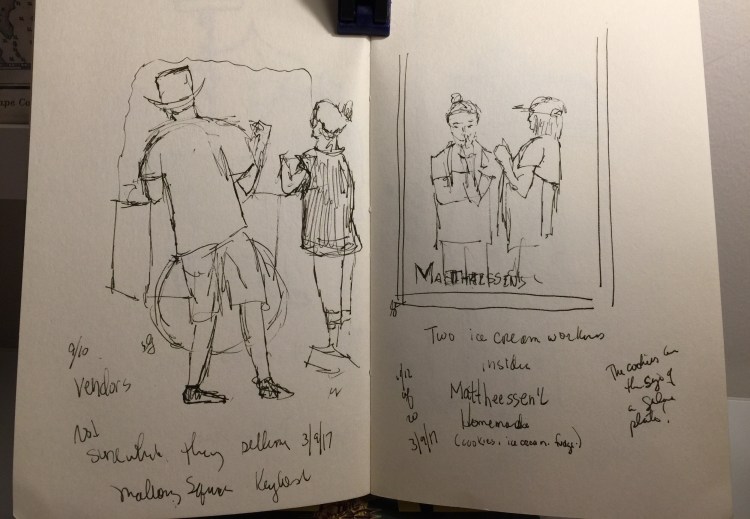 9/10 sg
Vendors
Not
they selling 3/9/17
Mallory Square Key West
MATTHEESSENS
sg
Two ice cream workers
inside
Mattheessen's
of
20 Homemade
3/9/17 (cookies, ice cream, fudge.)
The cookies are
the size of
a
plate.